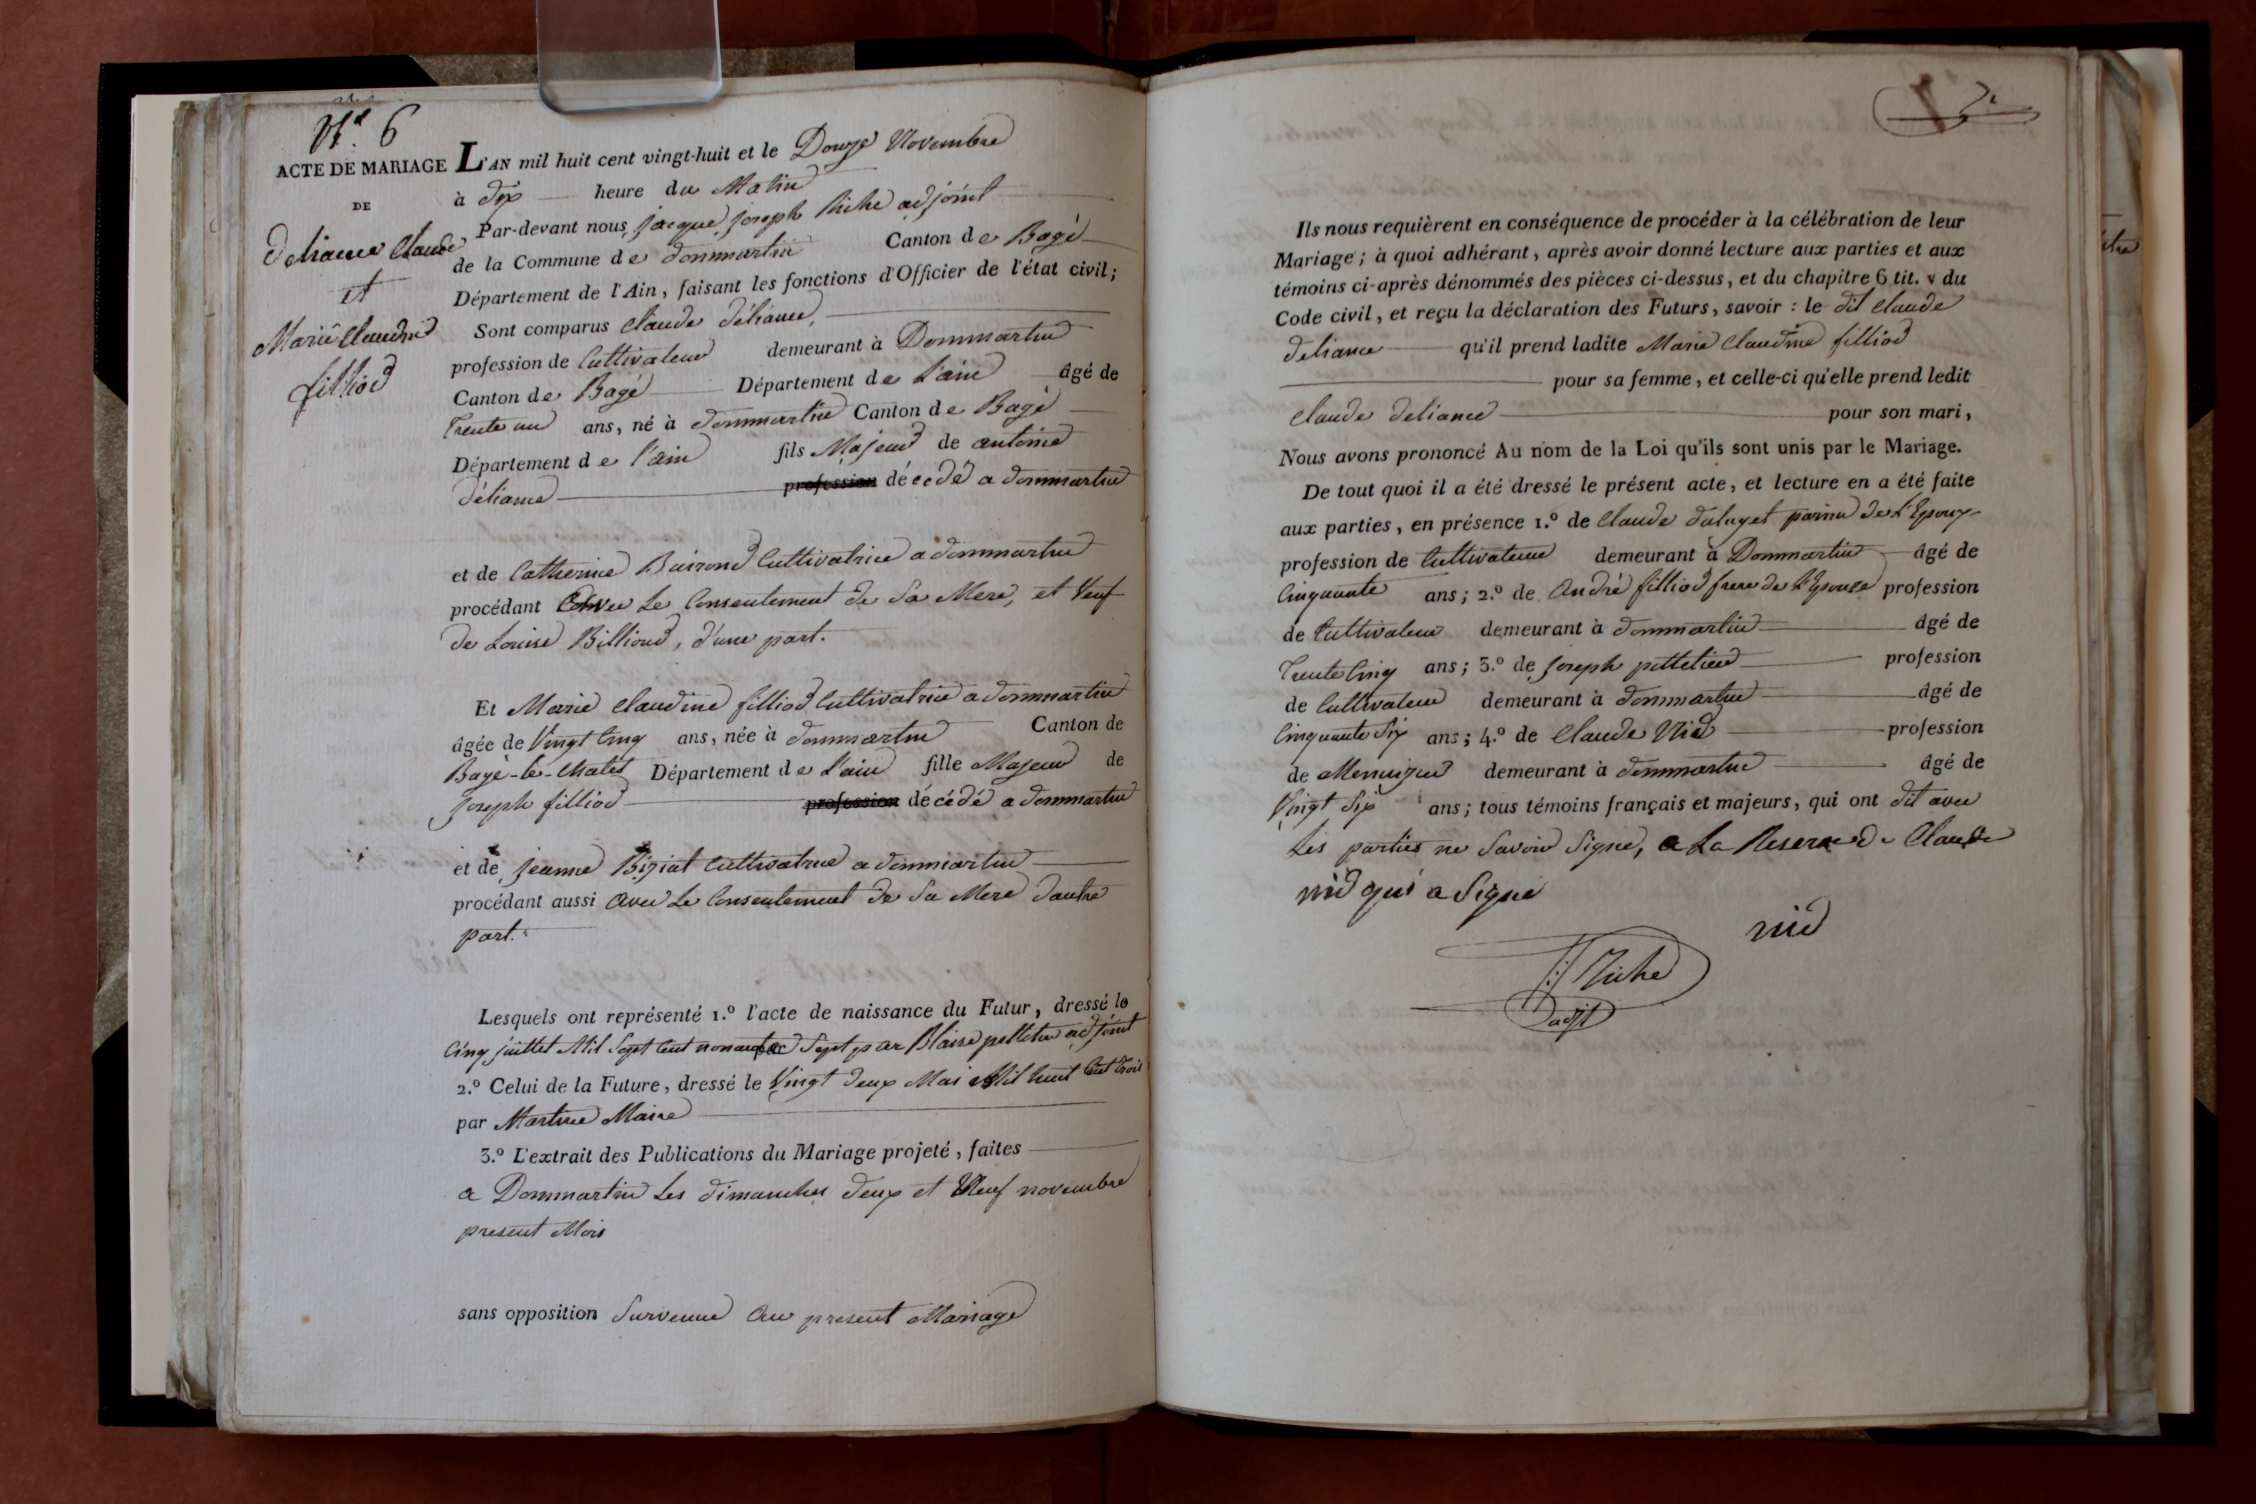 N.º 6
ACTE DE MARIAGE
DE
deliance Claude
et
Marie Claudine
filliod
L'AN mil huit cent vingt-huit et le Douze Novembre
à dix heure du Matin
Par-devant nous jacque joseph Riche adjoint
de la Commune de dommartin Canton de Bagé
Département de l'Ain, faisant les fonctions d'Officier de l'état civil;
Sont comparus Claude déliance,
profession de Cultivateur demeurant à Dommartin
Canton de Bagé Département de L'ain âgé de
Trente un ans, né à dommartin Canton de Bagé
Département de l'ain fils Majeur de antoine
déliance profession décédé a dommartin
et de Catherine Buirond Cultivatrice a dommartin
procédant avec Le Consentement de Sa Mere, et Veuf
de Louise Billioud, d'une part.
Et Marie Claudine filliod Cultivatrice a dommartin
âgée de Vingt Cinq ans, née à dommartin Canton de
Bagé-le-Chatel Département de L'ain fille Majeur de
joseph filliod profession décédé a dommartin
et de jeanne Biziat Cultivatrice a dommartin
procédant aussi avec Le Consentement de Sa Mere dautre
part.
Lesquels ont représenté 1.º l'acte de naissance du Futur, dressé le
Cinq juillet Mil Sept Cent nonante Sept par Blaise pelletier adjoint
2.º Celui de la Future, dressé le Vingt deux Mai Mil huit Cent trois
par Martin Maire
3.º L'extrait des Publications du Mariage projeté, faites
a Dommartin Les dimanches deux et Neuf novembre
present Mois
sans opposition Survenue au present Mariage
Ils nous requièrent en conséquence de procéder à la célébration de leur
Mariage; à quoi adhérant, après avoir donné lecture aux parties et aux
témoins ci-après dénommés des pièces ci-dessus, et du chapitre 6 tit. v du
Code civil, et reçu la déclaration des Futurs, savoir : le dit Claude
deliance qu'il prend ladite Marie Claudine filliod
pour sa femme, et celle-ci qu'elle prend ledit
Claude deliance pour son mari,
Nous avons prononcé Au nom de la Loi qu'ils sont unis par le Mariage.
De tout quoi il a été dressé le présent acte, et lecture en a été faite
aux parties, en présence 1.º de Claude parin de L'Epoux
profession de Cultivateur demeurant à Dommartin âgé de
Cinquante ans; 2.º de André filliod frere de L'Epouse profession
de Cultivateur demeurant à dommartin âgé de
Trente Cinq ans; 3.º de joseph pelletier profession
de Cultivateur demeurant à dommartin âgé de
Cinquante Six ans; 4.º de Claude Nid profession
de Menuizier demeurant à dommartin âgé de
Vingt Six ans; tous témoins français et majeurs, qui ont dit avec
Les parties ne Savoir Signé, a La Reserve de Claude
nid qui a Signé
nid
Riche
adjt